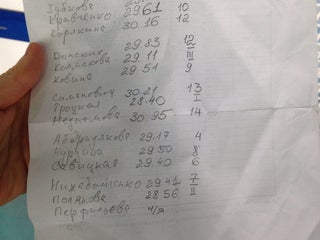 Зубкова 29.61 10
Кравченко 30.16 12
Корякина
Донских 29.83 12
Колмакова 29.11 III
Ковина 29.51 9
Симанович 30.21 13
Троцкая 28.40 I
30.95 14
Абдразякова 29.17 4
29.50 8
Савицкая 29.40 6
29.41 7
Полякова 28.56 II
Перфильева н/я